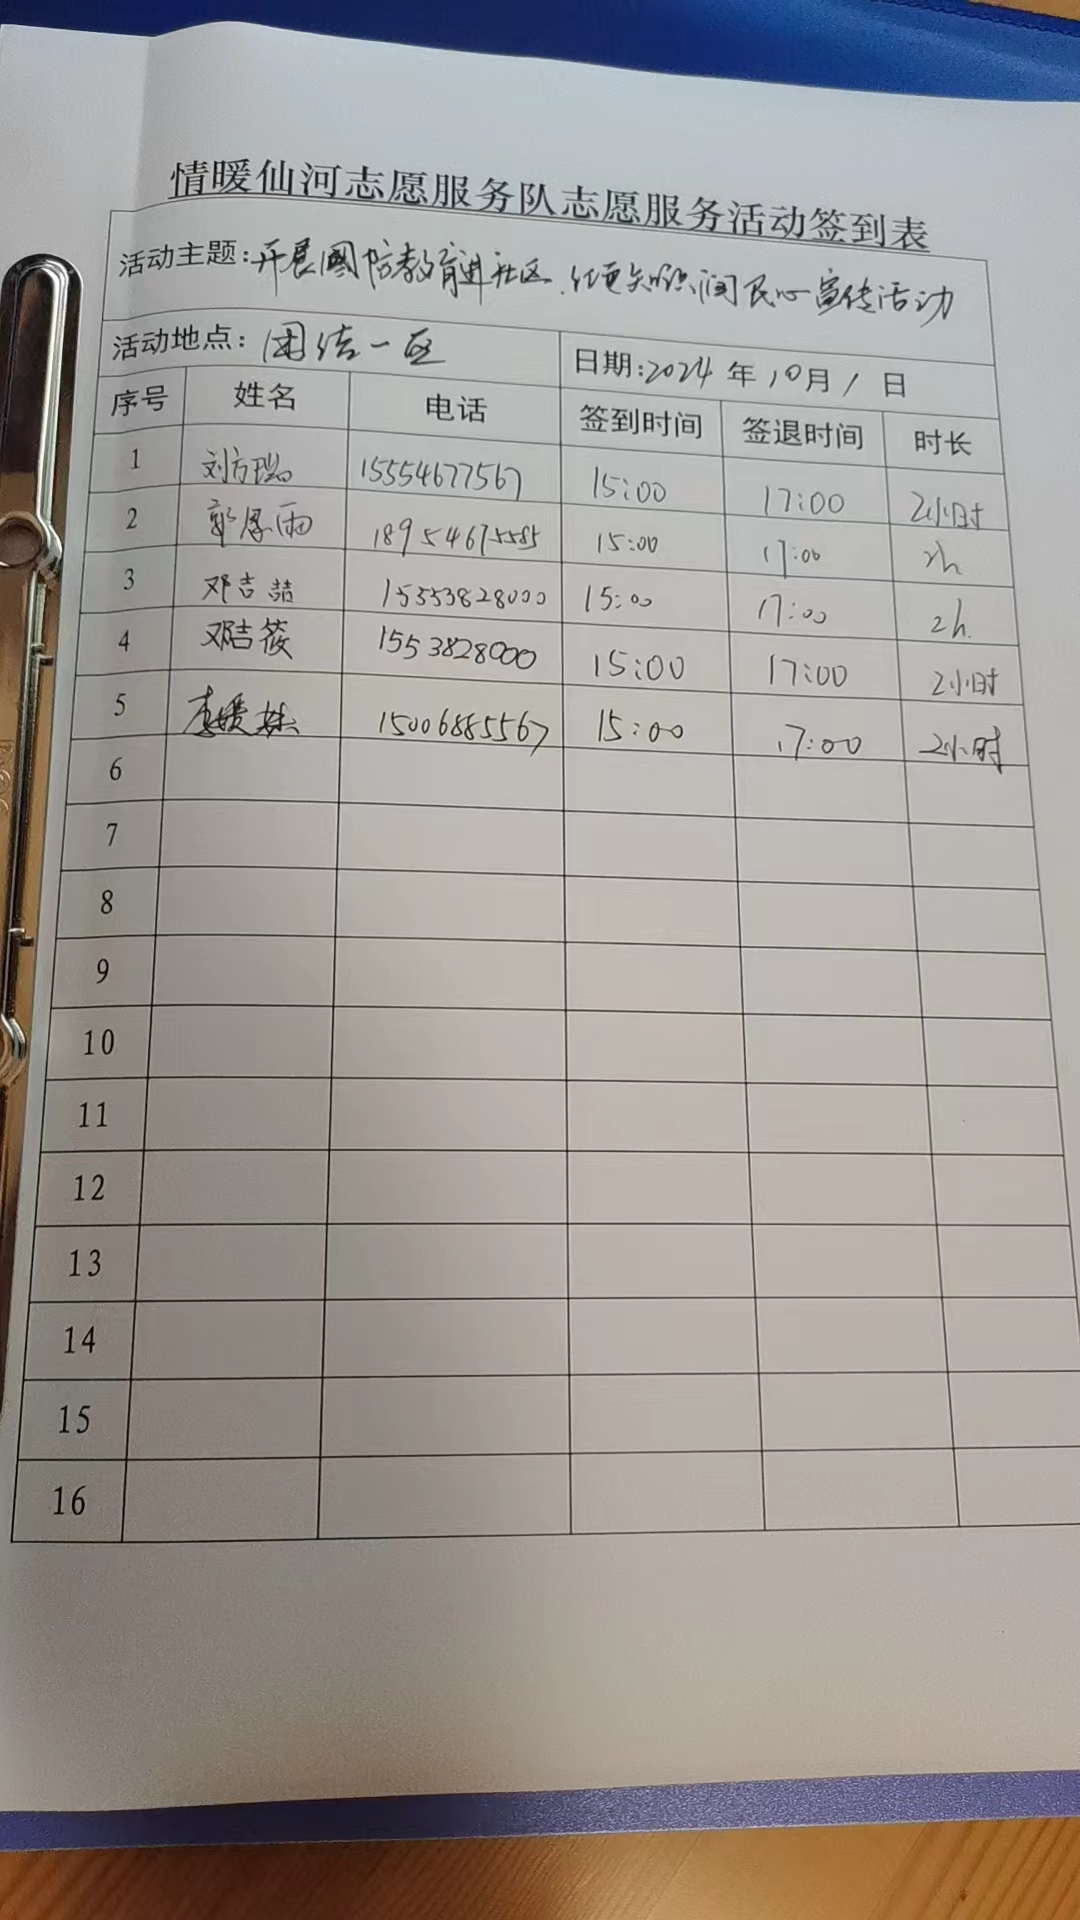 情暖仙河志愿服务队志愿服务活动签到表
活动主题:开展国防教育进社区、红色知识润民心宣传活动
活动地点: 团结一区 日期:2024年10月1日
序号 姓名 电话 签到时间 签退时间 时长
1 刘方瑞 15554677567 15:00 17:00 2小时
2 郭厚雨 18954675585 15:00 17:00 2h
3 邓吉喆 15553828000 15:00 17:00 2h.
4 邓吉筱 1553828000 15:00 17:00 2小时
5 李媛 15006885567 15:00 17:00 2小时
6
7
8
9
10
11
12
13
14
15
16